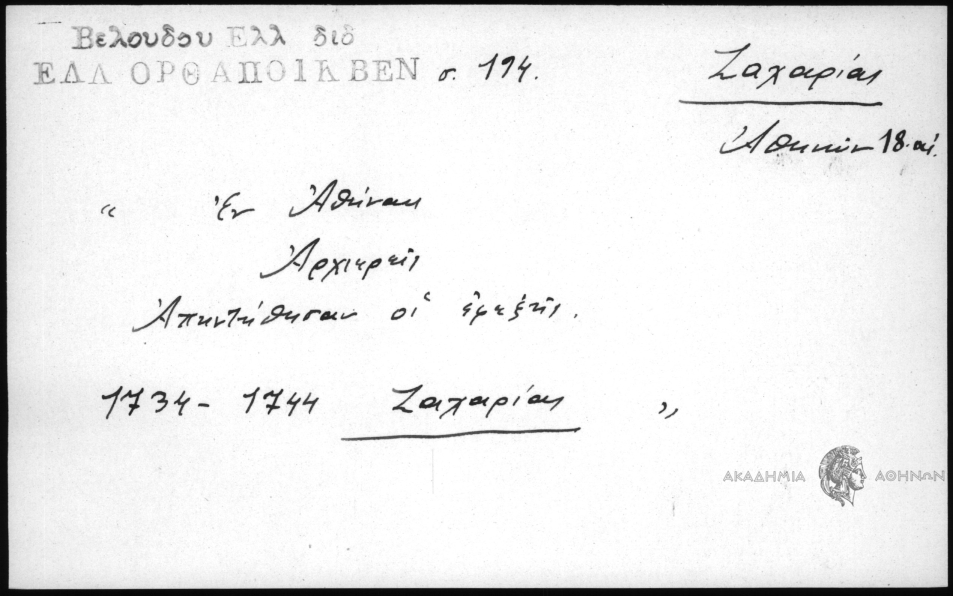 Βελουδου Ελλ διδ
ΕΛΛ ΟΡΘ ΑΠΟΙΚ ΒΕΝ σ. 194.
Ζαχαρίας
Ἀθηνῶν 18. αἰ.
“ Ἐν Ἀθήναις
Ἀρχιερεῖς
Ἀπηντήθησαν οἱ ἐφεξῆς.
1734 - 1744 Ζαχαρίας „
ΑΚΑΔΗΜΙΑ ΑΘΗΝΩΝ